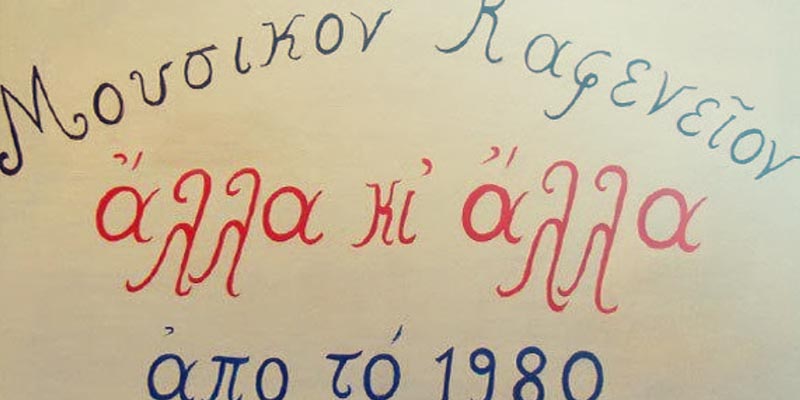 Μουσικον Καφενεῖον
ἄλλα κι' ἄλλα
ἀπο τό 1980